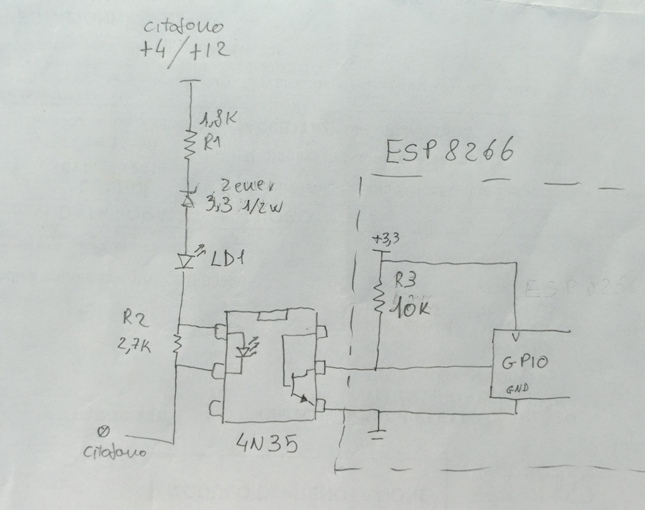 citofono
+4/+12
1,8K
R1
Zener
3,3 1/2W
LD1
R2
2,7K
citofono
4N35
ESP8266
+3,3
R3
10K
V
GPIO
GND